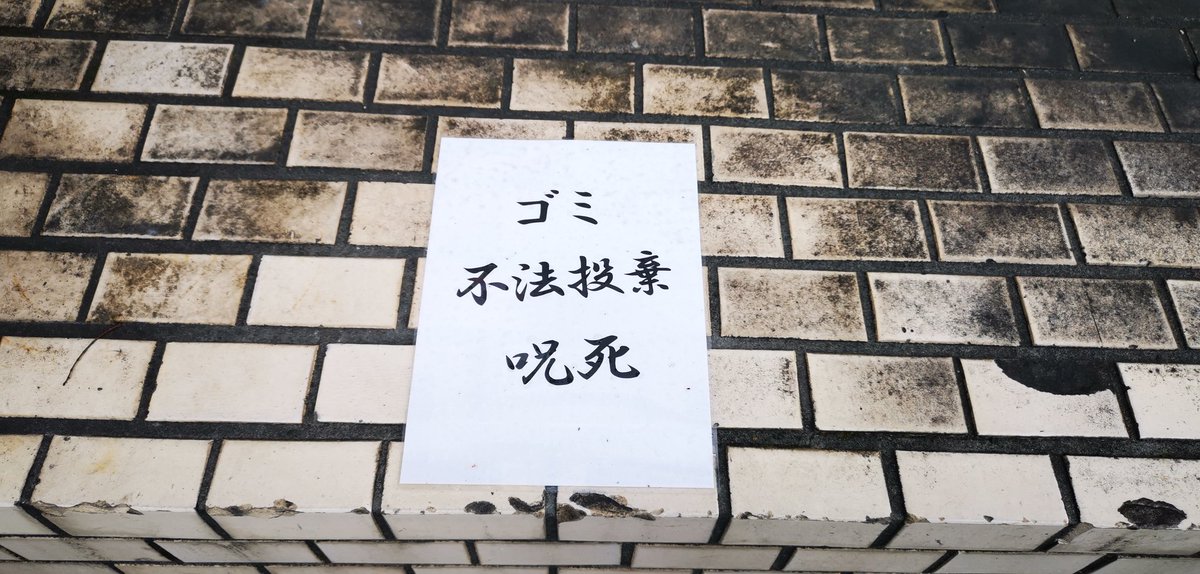 ゴミ
不法投棄
呪死